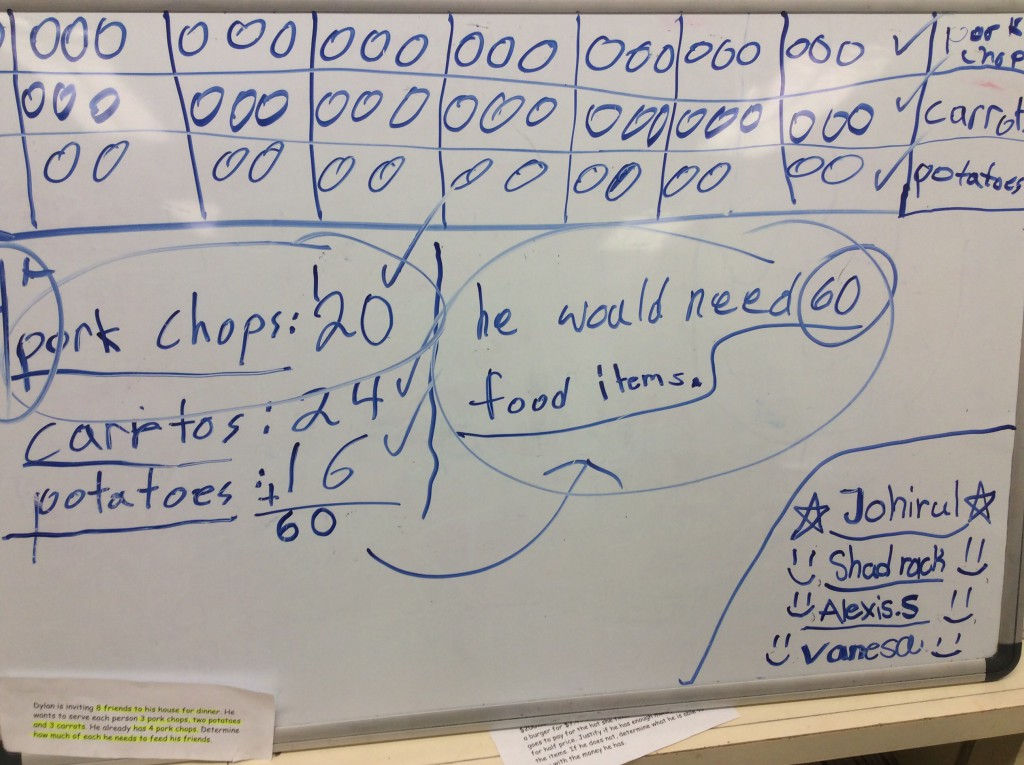 pork
chop
carrot
potatoes
pork chops: 20
carrtos: 24
potatoes: 16
+
60
he would need 60
food items.
Johirul
Shadrack
Alexis.S
vanesa
Dylan is inviting 8 friends to his house for dinner. He
wants to serve each person 3 pork chops, two potatoes
and 3 carrots. He already has 4 pork chops. Determine
how much of each he needs to feed his friends.
a burger for
goes to pay for the hot
for half price. Justify if he has enough
the items. If he does not, determine what he is able to
with the money he has.